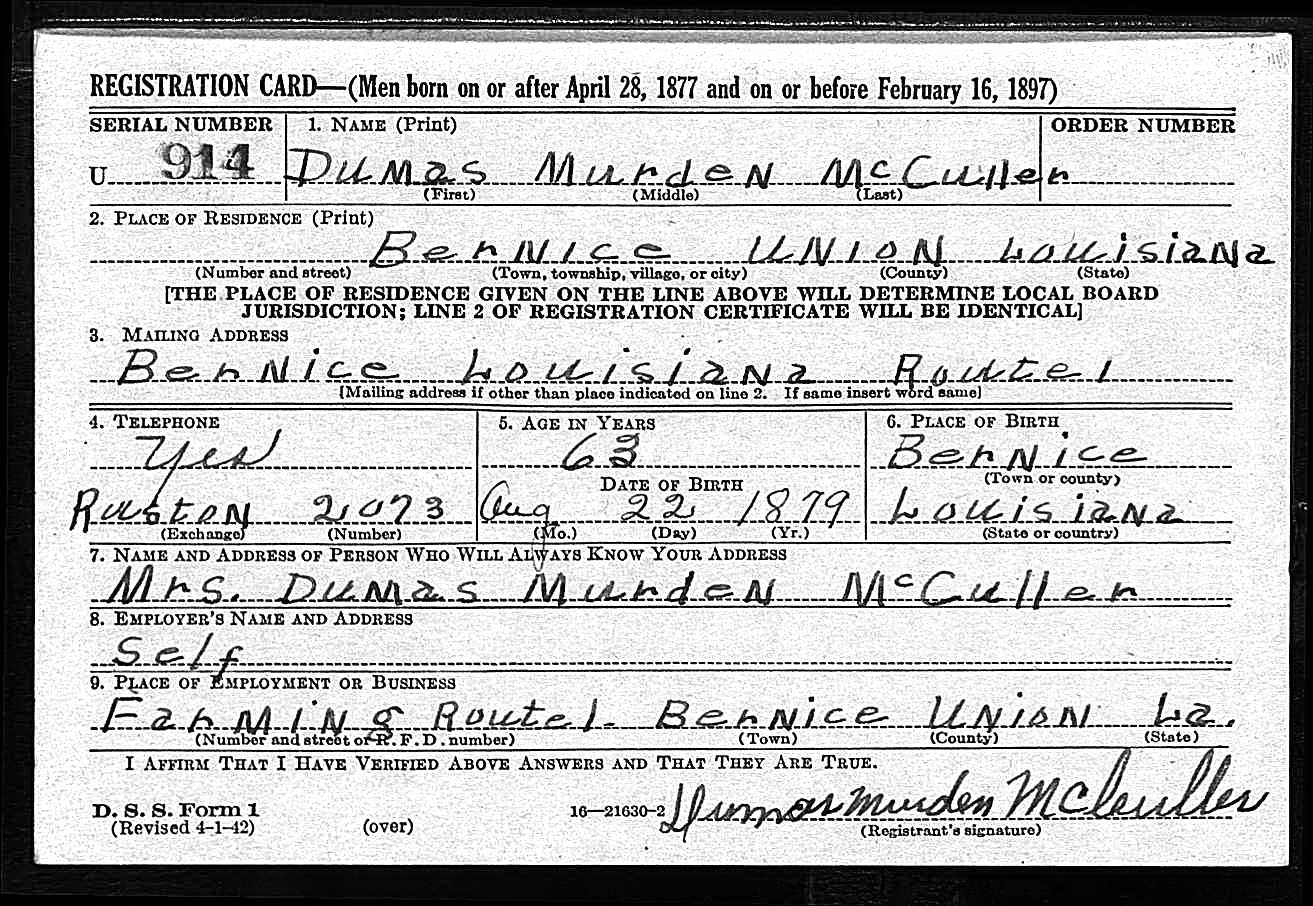 REGISTRATION CARD—(Men born on or after April 28, 1877 and on or before February 16, 1897)
SERIAL NUMBER 1. NAME (Print) ORDER NUMBER
U 914 Dumas Murden McCuller
(First) (Middle) (Last)
2. PLACE OF RESIDENCE (Print)
Bernice Union Louisiana
(Number and street) (Town, township, village, or city) (County) (State)
[THE PLACE OF RESIDENCE GIVEN ON THE LINE ABOVE WILL DETERMINE LOCAL BOARD
JURISDICTION; LINE 2 OF REGISTRATION CERTIFICATE WILL BE IDENTICAL]
3. MAILING ADDRESS
Bernice Louisiana Route 1
[Mailing address if other than place indicated on line 2. If same insert word same]
4. TELEPHONE 5. AGE IN YEARS 6. PLACE OF BIRTH
Yes 63 Bernice
DATE OF BIRTH (Town or county)
Ruston 2073 Aug 22 1879 Louisiana
(Exchange) (Number) (Mo.) (Day) (Yr.) (State or country)
7. NAME AND ADDRESS OF PERSON WHO WILL ALWAYS KNOW YOUR ADDRESS
Mrs. Dumas Murden McCuller
8. EMPLOYER'S NAME AND ADDRESS
Self
9. PLACE OF EMPLOYMENT OR BUSINESS
Farming Route 1. Bernice Union La.
(Number and street or R. F. D. number) (Town) (County) (State)
I AFFIRM THAT I HAVE VERIFIED ABOVE ANSWERS AND THAT THEY ARE TRUE.
D. S. S. Form 1 16—21630-2 Dumas Murden McCuller
(Revised 4-1-42) (over) (Registrant's signature)